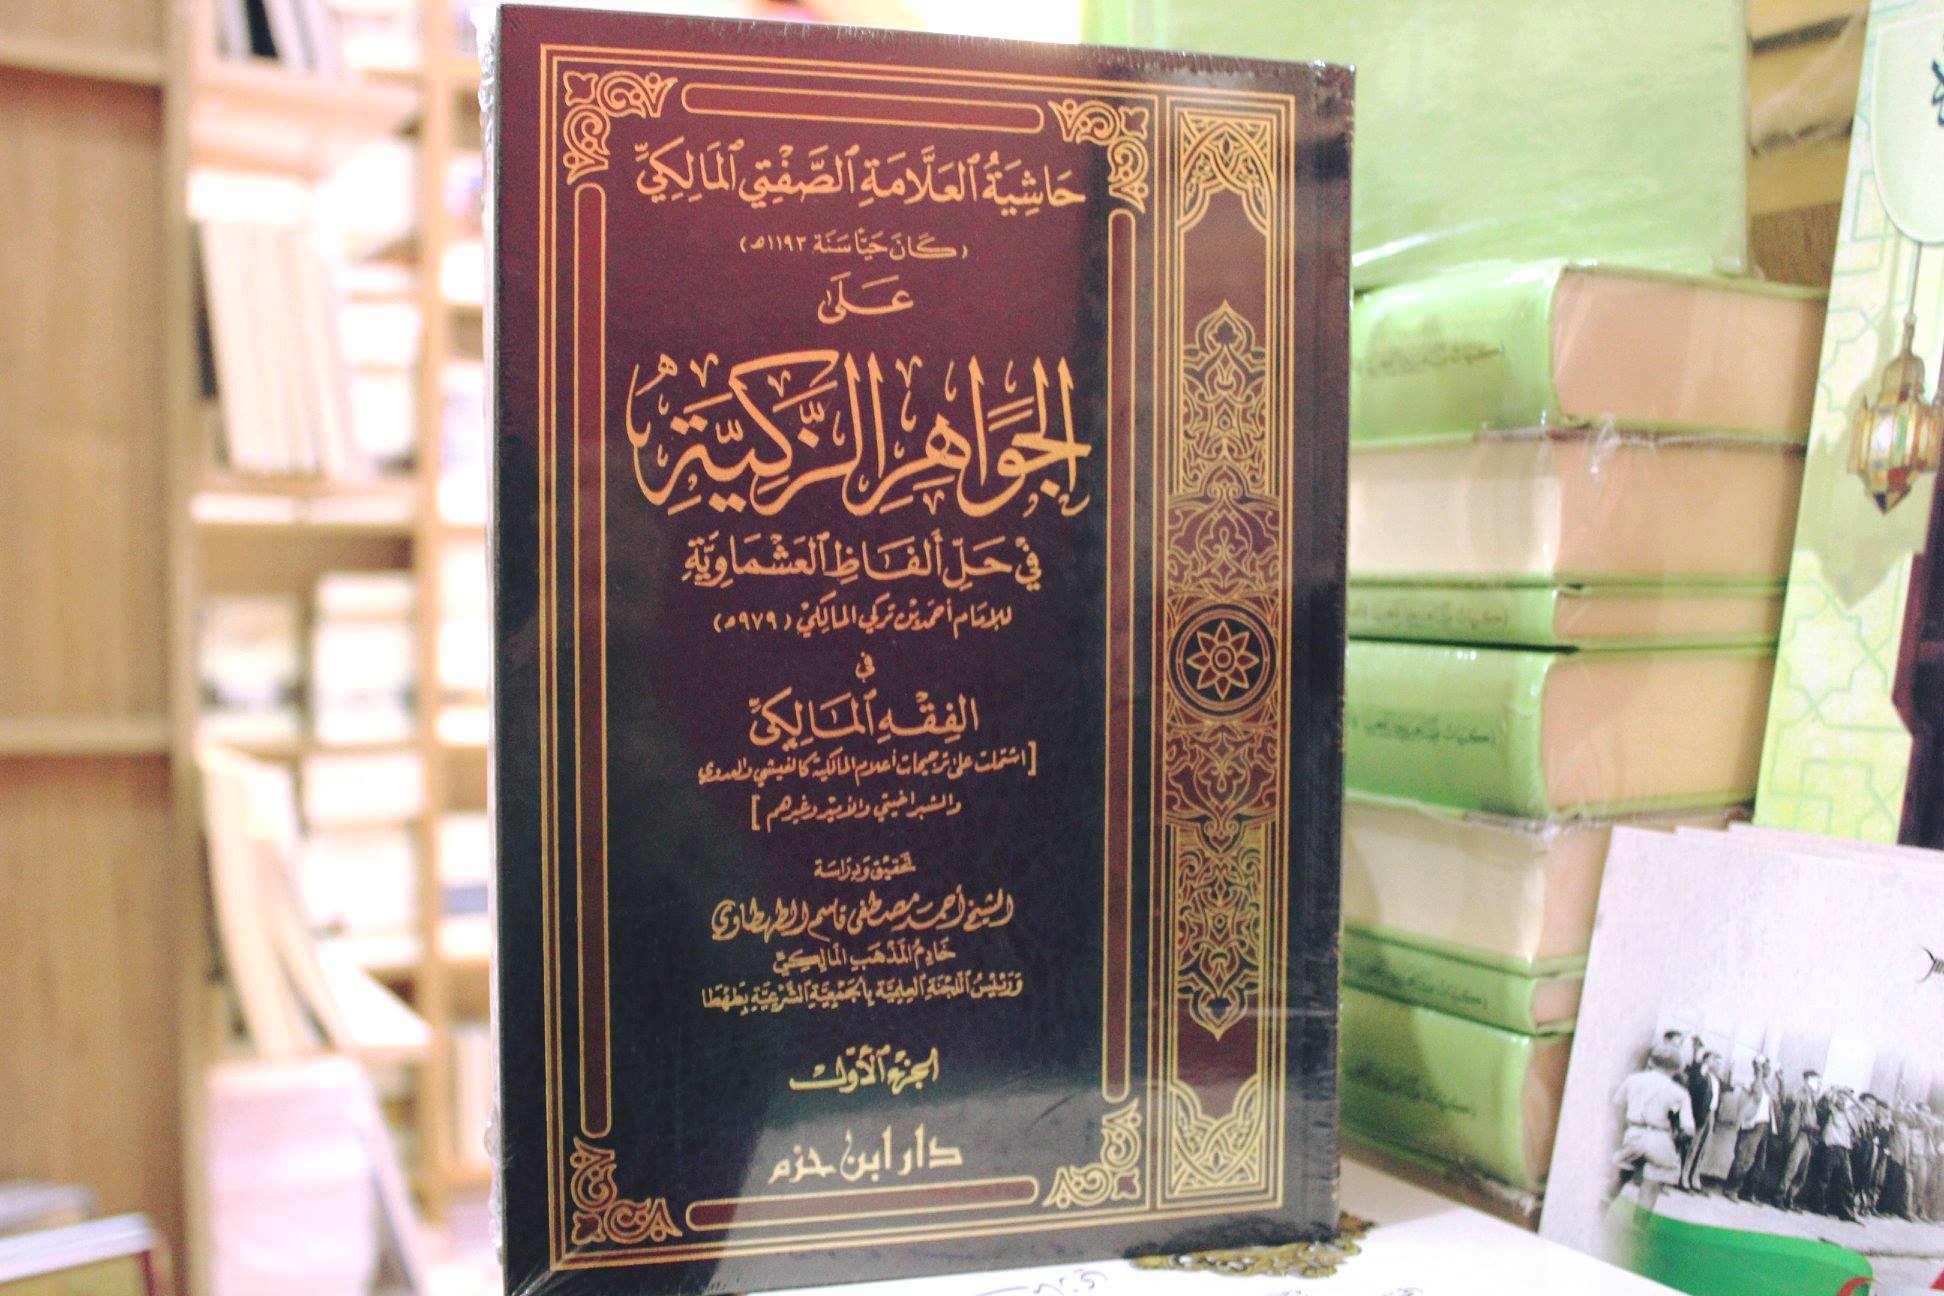 حَاشِيَةُ ٱلعَلَّامَةِ ٱلصَّفْتِي ٱلمَالِكِيِّ
(كَانَ حَيًّا سَنَة ١١٩٣هـ)
عَلَى
الجَوَاهِرِ الزَّكِيَّةِ
فِي حَلِّ أَلفَاظِ ٱلعَشْمَاوِيَّةِ
للإمَام أحمَد بن تركي المالكي (٩٧٩هـ)
في
الفِقْهِ ٱلمَالِكِيِّ
[اشتملت على ترجيحات أعلام المالكية كالفيشي والعدوي
والشبراخيتي والأمير وغيرهم]
تحقيق وَدِرَاسَة
الشيخ أحمد مصطفى قاسم الطهطاوي
خَادِمُ المَذْهَبِ المَالِكِيِّ
وَرَئِيْسُ ٱللَّجْنَةِ ٱلعِلمِيَّة بِالجَمْعِيَّةِ ٱلشَّرْعِيَّةِ بِطَهْطَا
الجزء ٱلأوّل
دار ابن حزم